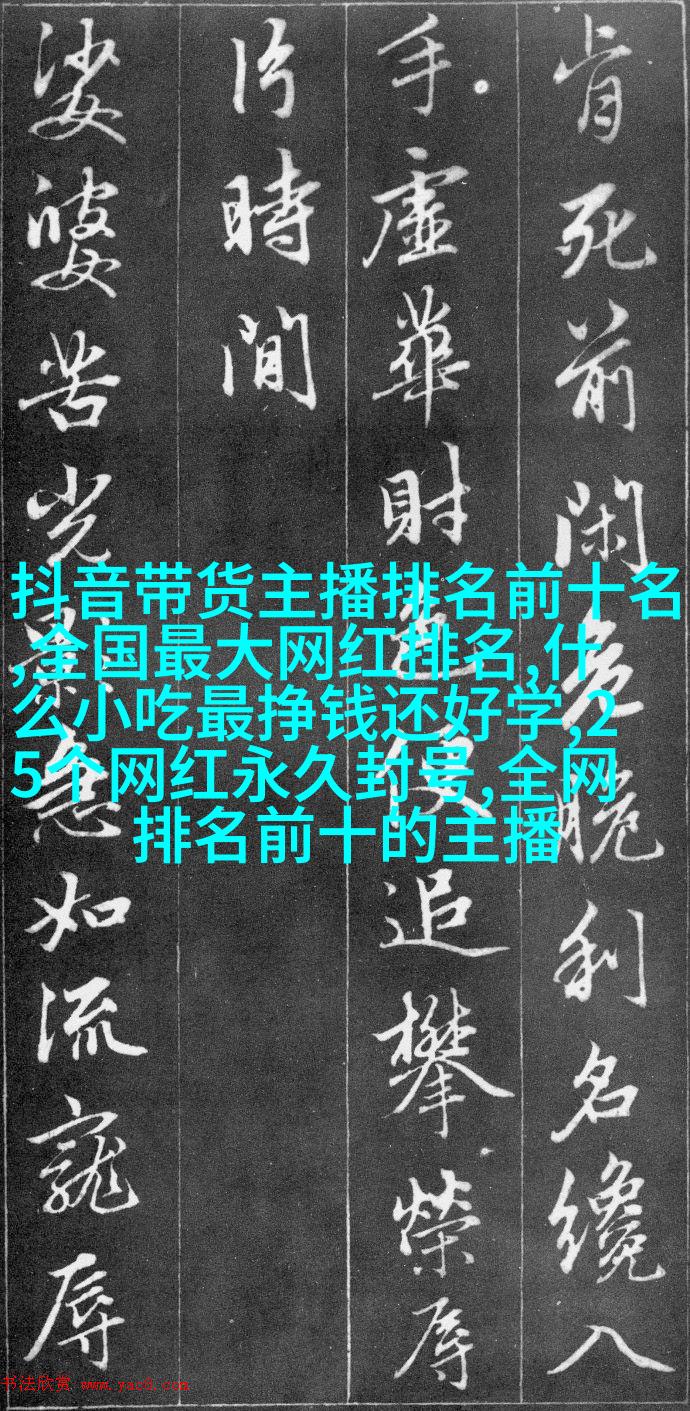 肯死前閑危脆利名纔入
手虛華財色便追攀榮辱
片時間
娑婆苦光影急如流寵辱
抖音带货主播排名前十名
,全国最大网红排名,什
么小吃最挣钱还好学,2
5个网红永久封号,全网
排名前十的主播
书法欣赏 www.yac8.com